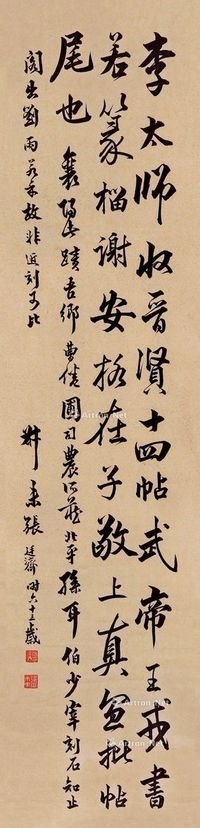 李太師收晉賢十四帖武帝王戎書
若篆籀謝安格在子敬上真宜批帖
尾也 襄陽蹟吾鄉曹倦圃司農所藏北平孫耳伯少宰刻石知止
閣出劉雨若手故非近刻可比
叔未張廷濟時六十三歲